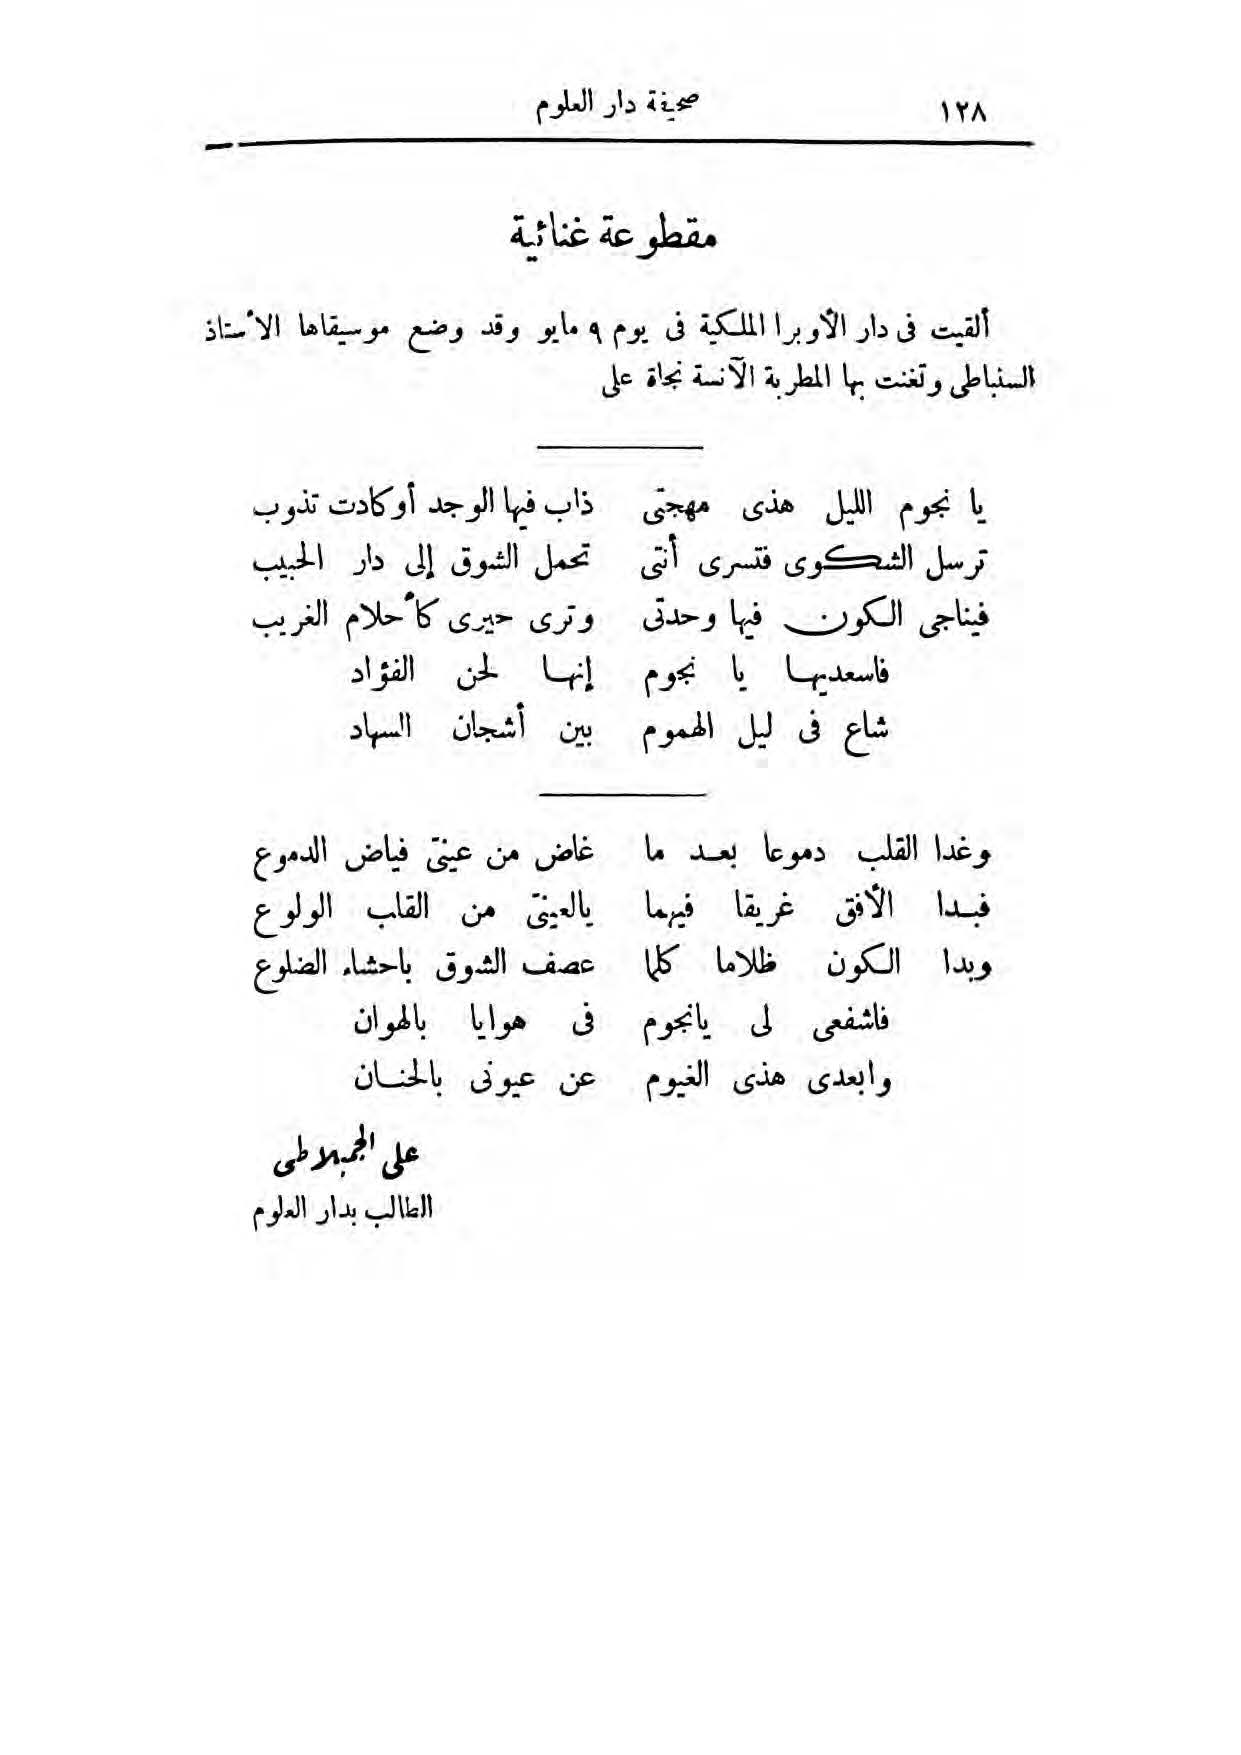 ١٢٨ صحيفة دار العلوم
مقطوعة غنائية
ألقيت فى دار الأوبرا الملكية فى يوم ٩ مايو وقد وضع موسيقاها الأستاذ
السنباطى وتغنت بها المطربة الآنسة نجاة على
يا نجوم الليل هذى مهجتى ذاب فيها الوجد أوكادت تذوب
ترسل الشكوى فتسرى أنتى تحمل الشوق إلى دار الحبيب
فيناجى الكون فيها وحدتى وترى حيرى كأحلام الغريب
فاسعديها يا نجوم إنها لحن الفؤاد
شاع فى ليل الهموم بين أشجان السهاد
وغدا القلب دموعا بعد ما غاض من عينىّ فياض الدموع
فبدا الأفق غريقا فيهما يالعينىّ من القلب الولوع
وبدا الكون ظلاما كلما عصف الشوق باحشاء الضلوع
فاشفعى لى يانجوم فى هوايا بالهوان
وابعدى هذى الغيوم عن عيونى بالحنان
على الجمبلاطى
الطالب بدار العلوم